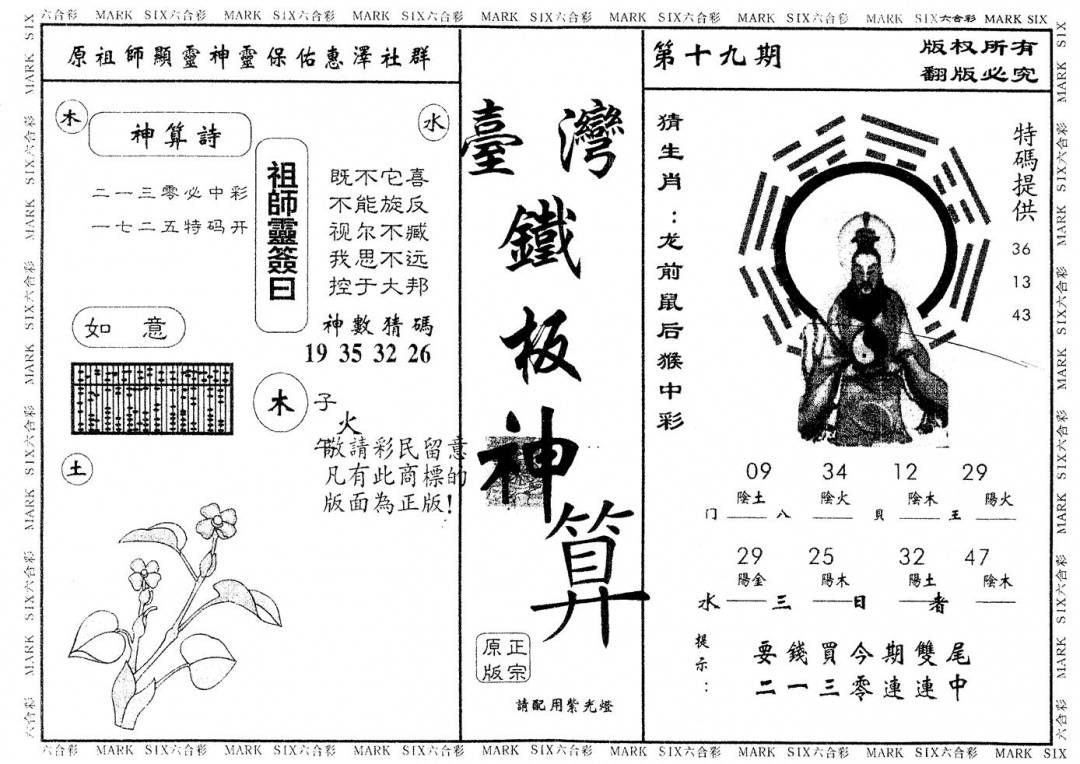 六合彩 MARK SIX六合彩 MARK SIX六合彩 MARK SIX六合彩 MARK SIX六合彩 MARK SIX六合彩 MARK SIX六合彩 MARK SIX六合彩 MARK SIX
原祖師顯靈神靈保佑惠澤社群
木
水
神算詩
二一三零必中彩
一七二五特码开
祖師靈簽曰
既不它喜
不能旋反
视尔不臧
我思不远
控于大邦
神數猜碼
19 35 32 26
如意
木
子
火
午
敬請彩民留意
凡有此商標的
版面為正版!
土
臺灣
鐵
板
神
算
正宗
原版
請配用紫光燈
第十九期
版权所有
翻版必究
猜生肖:龙前鼠后猴中彩
特碼提供
36
13
43
09 34 12 29
陰土 陰火 陰木 陽火
门 八 貝 王
29 25 32 47
陽金 陽木 陽土 陰木
水 三 日 者
提示:
要錢買今期雙尾
二一三零連連中
六合彩 MARK SIX六合彩 MARK SIX六合彩 MARK SIX六合彩 MARK SIX六合彩 MARK SIX六合彩 MARK SIX六合彩 MARK SIX六合彩 MARK SIX